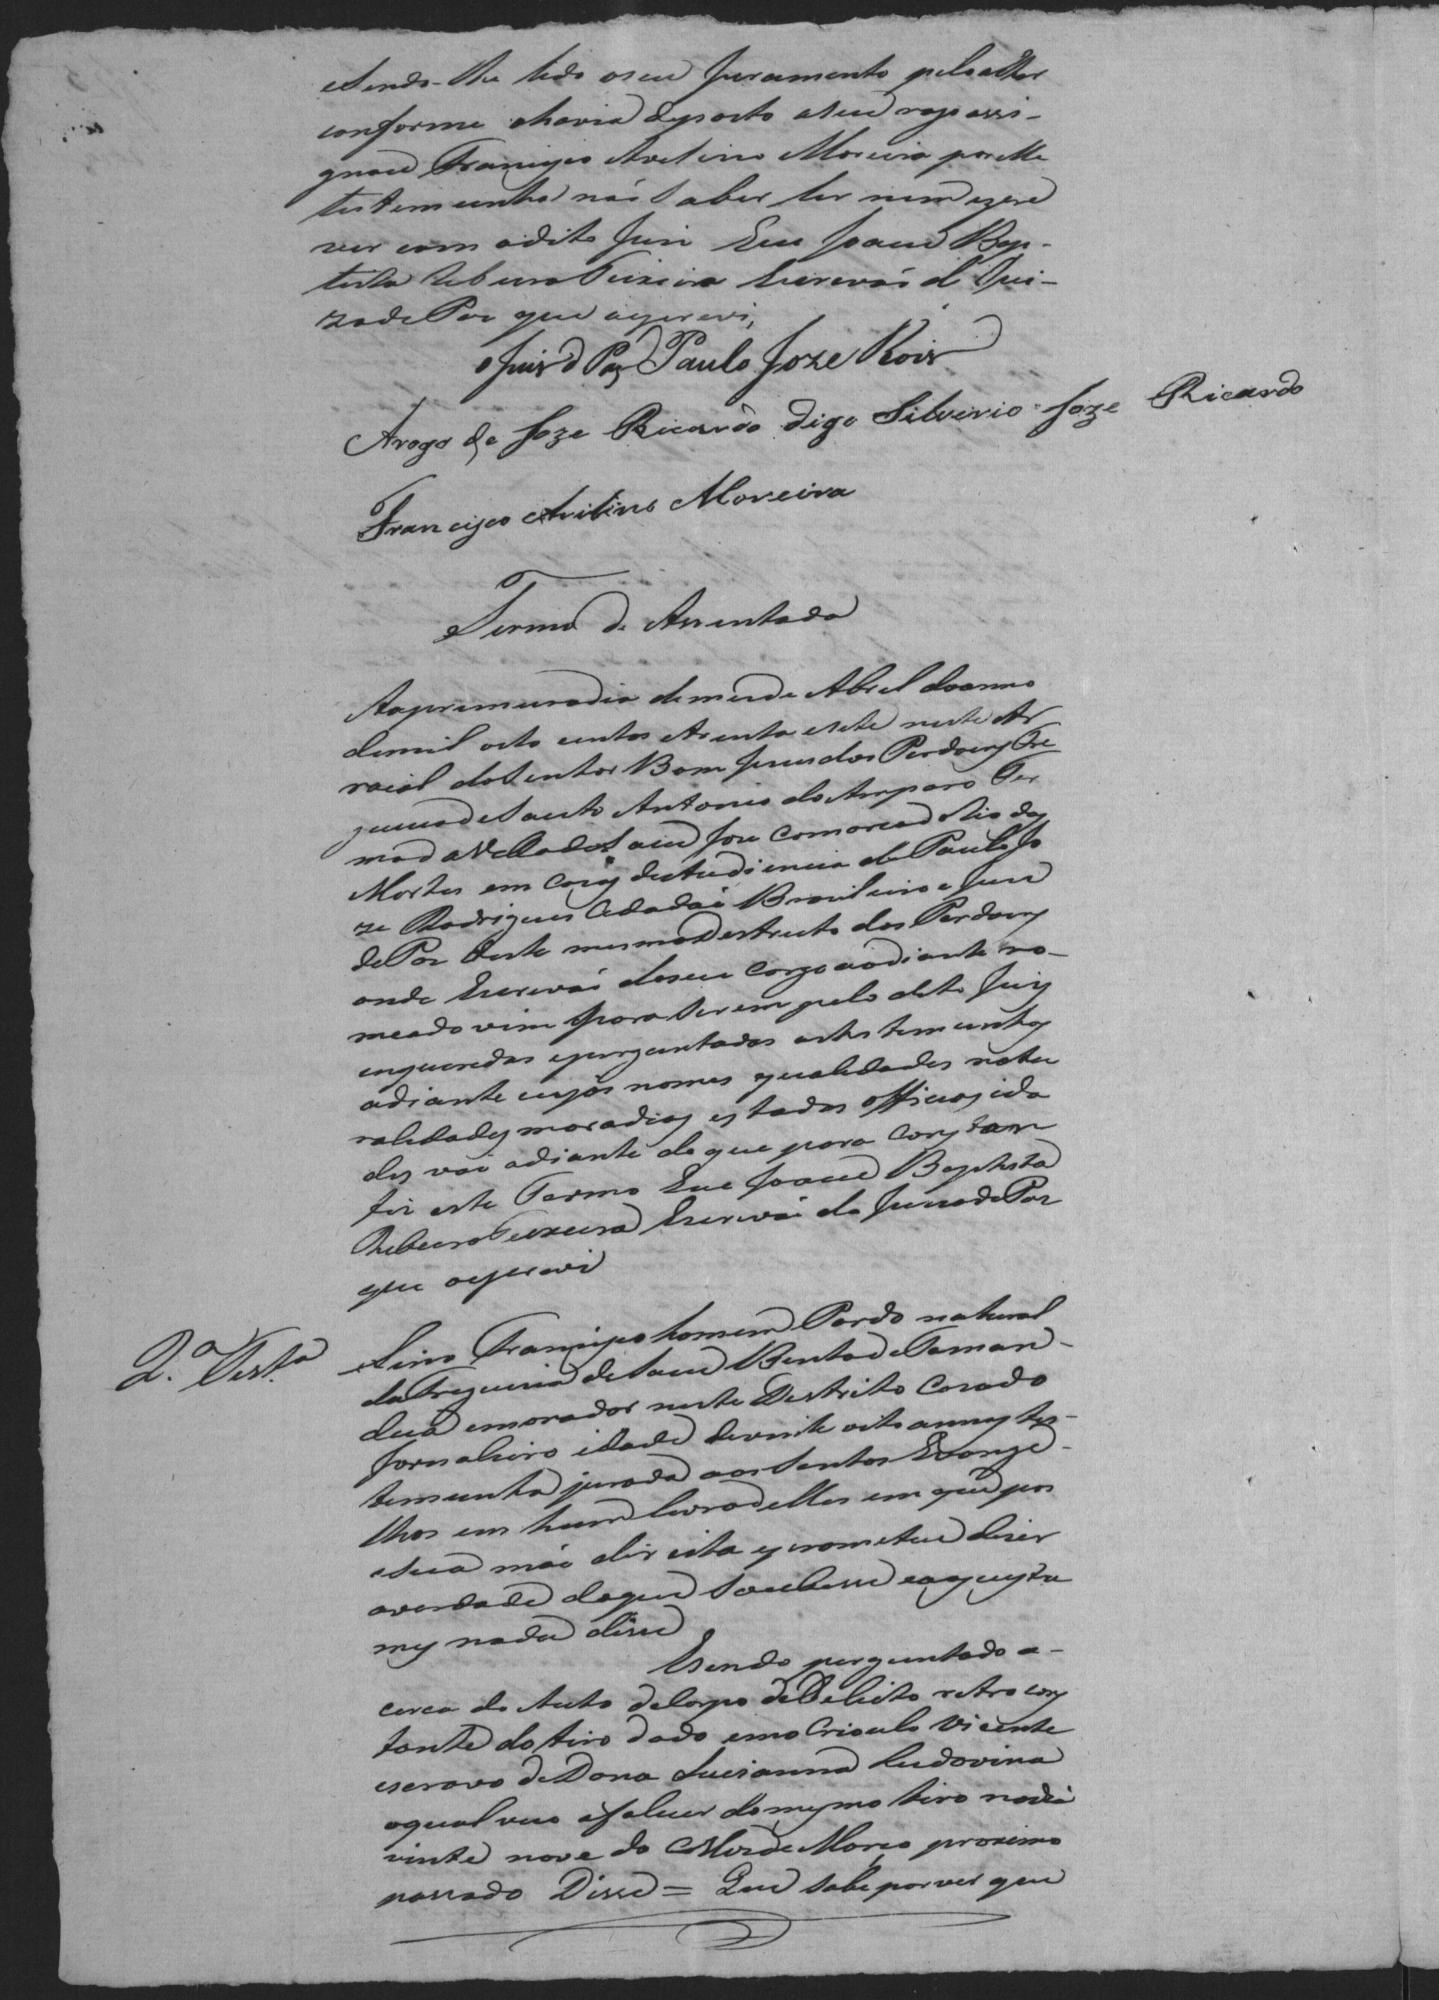 eSendo-lhe lido o seu Juramento pelo achar
conforme ahavia deposto aseu rogo assi-
gnou Francisco Avelino Moreira por elle
testemunha não Saber ler nem escre
ver com odito Juis Eu Joaõ Bap-
tista Ribeiro Teixeira Escrivaõ d Jui-
zo de Paz que escrevi,
o Juis d Paz Paulo Joze Roiz
Arogo de Joze Ricardo digo Silverio Joze Ricardo
Francisco Avilino Moreira
Termo de Assentada
Ao primeiro dia do mes de Abril do anno
de mil oito centos trenta e sete neste Ar
raial do Senhor Bom Jesus dos Perdoens Fre
guesia de Santo Antonio do Amparo Ter
mo da Villa de Saõ Joze Comarca do Rio das
Mortes em Casas da Audiencia de Paulo Jo
ze Rodrigues Cidadaõ Brasileiro e Juis
de Paz deste mesmo Destricto dos Perdoens
onde Escrivaõ de seu Cargo aodiante no-
meado vim para serem pelo dito Juis
enqueredas e perguntadas as testemunhas
adiante cujos nomes qualidades natu
ralidades moradias estados officios ida
des vaõ adiante do que para Constar
fis este Termo Eu Joaõ Baptista
Ribeiro Teixeira Escrivaõ do Juizo de Paz
que o escrevi
2.ª Test.ª Lino Francisco homem Pardo natural
da Freguesia de Saõ Bento de Taman-
dua e morador neste Destrito Casado
Jornaleiro idade de vinte oito annos tes-
temunha jurada aos Santos Evange-
lhos em hum livro delles em que pos
a sua maõ direita e prometeu diser
a verdade do que Soubesse e aos custu
mes nada disse
E sendo perguntado a-
cerca do Auto de Corpo de Delicto retro cons
tante do tiro dado em o Crioulo Vicente
escravo de Dona Luisanna Ludovina
o qual veio a faleser do mesmo tiro no dia
vinte nove do Mes de Março proximo
passado Disse = Que sabe por ver que